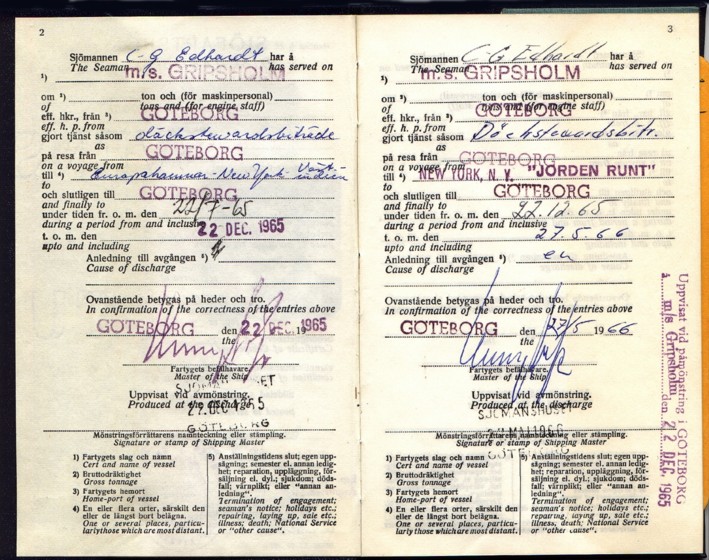 2
Sjömannen C G Edhardt har å
The Seaman has served on
m/s. GRIPSHOLM
¹)
om ²) ton och (för maskinpersonal)
of tons and (for engine staff)
eff. hkr., från ³) GÖTEBORG
eff. h. p. from
gjort tjänst såsom däckstewardsbiträde
as
på resa från GÖTEBORG
on a voyage from
till ⁴) Europahamnar-New York-
to
och slutligen till GÖTEBORG
and finally to
under tiden fr. o. m. den 22/7-65
during a period from and inclusive
t. o. m. den 22 DEC. 1965
upto and including
Anledning till avgången ⁵)
Cause of discharge
Ovanstående betygas på heder och tro.
In confirmation of the correctness of the entries above
GÖTEBORG den 22 DEC. 1965
the
Fartygets befälhavare.
Master of the Ship
Uppvisat vid avmönstring.
Produced at the discharge
GÖTEBORG
Mönstringsförrättarens namnteckning eller stämpling.
Signature or stamp of Shipping Master
1) Fartygets slag och namn
Cert and name of vessel
2) Bruttodräktighet
Gross tonnage
3) Fartygets hemort
Home-port of vessel
4) En eller flera orter, särskilt den
eller de längst bort belägna.
One or several places, particu-
larly those which are most distant.
5) Anställningstidens slut; egen upp-
sägning; semester el. annan ledig-
het; reparation, uppläggning, för-
säljning el. dyl.; sjukdom; döds-
fall; värnplikt; eller "annan an-
ledning".
Termination of engagement;
seaman's notice; holidays etc.;
repairing, laying up, sale etc.;
illness; death; National Service
or "other cause".
3
Sjömannen C G Edhardt har å
The Seaman has served on
m/s. GRIPSHOLM
¹)
om ²) ton och (för maskinpersonal)
of tons and (for engine staff)
eff. hkr., från ³) GÖTEBORG
eff. h. p. from
gjort tjänst såsom Däckstewardsbitr.
as
på resa från GÖTEBORG
on a voyage from
till ⁴) NEW YORK, N. Y. "JORDEN RUNT"
to
och slutligen till GÖTEBORG
and finally to
under tiden fr. o. m. den 22.12.65
during a period from and inclusive
t. o. m. den 27.5.66
upto and including
Anledning till avgången ⁵) eu
Cause of discharge
Ovanstående betygas på heder och tro.
In confirmation of the correctness of the entries above
GÖTEBORG den 27/5 1966
the
Fartygets befälhavare.
Master of the Ship
Uppvisat vid avmönstring.
Produced at the discharge
SJÖMANSHUSET
Mönstringsförrättarens namnteckning eller stämpling.
Signature or stamp of Shipping Master
1) Fartygets slag och namn
Cert and name of vessel
2) Bruttodräktighet
Gross tonnage
3) Fartygets hemort
Home-port of vessel
4) En eller flera orter, särskilt den
eller de längst bort belägna.
One or several places, particu-
larly those which are most distant.
5) Anställningstidens slut; egen upp-
sägning; semester el. annan ledig-
het; reparation, uppläggning, för-
säljning el. dyl.; sjukdom; döds-
fall; värnplikt; eller "annan an-
ledning".
Termination of engagement;
seaman's notice; holidays etc.;
repairing, laying up, sale etc.;
illness; death; National Service
or "other cause".
Uppvisat vid påmönstring i GÖTEBORG
å m/s Gripsholm den 22 DEC 1965